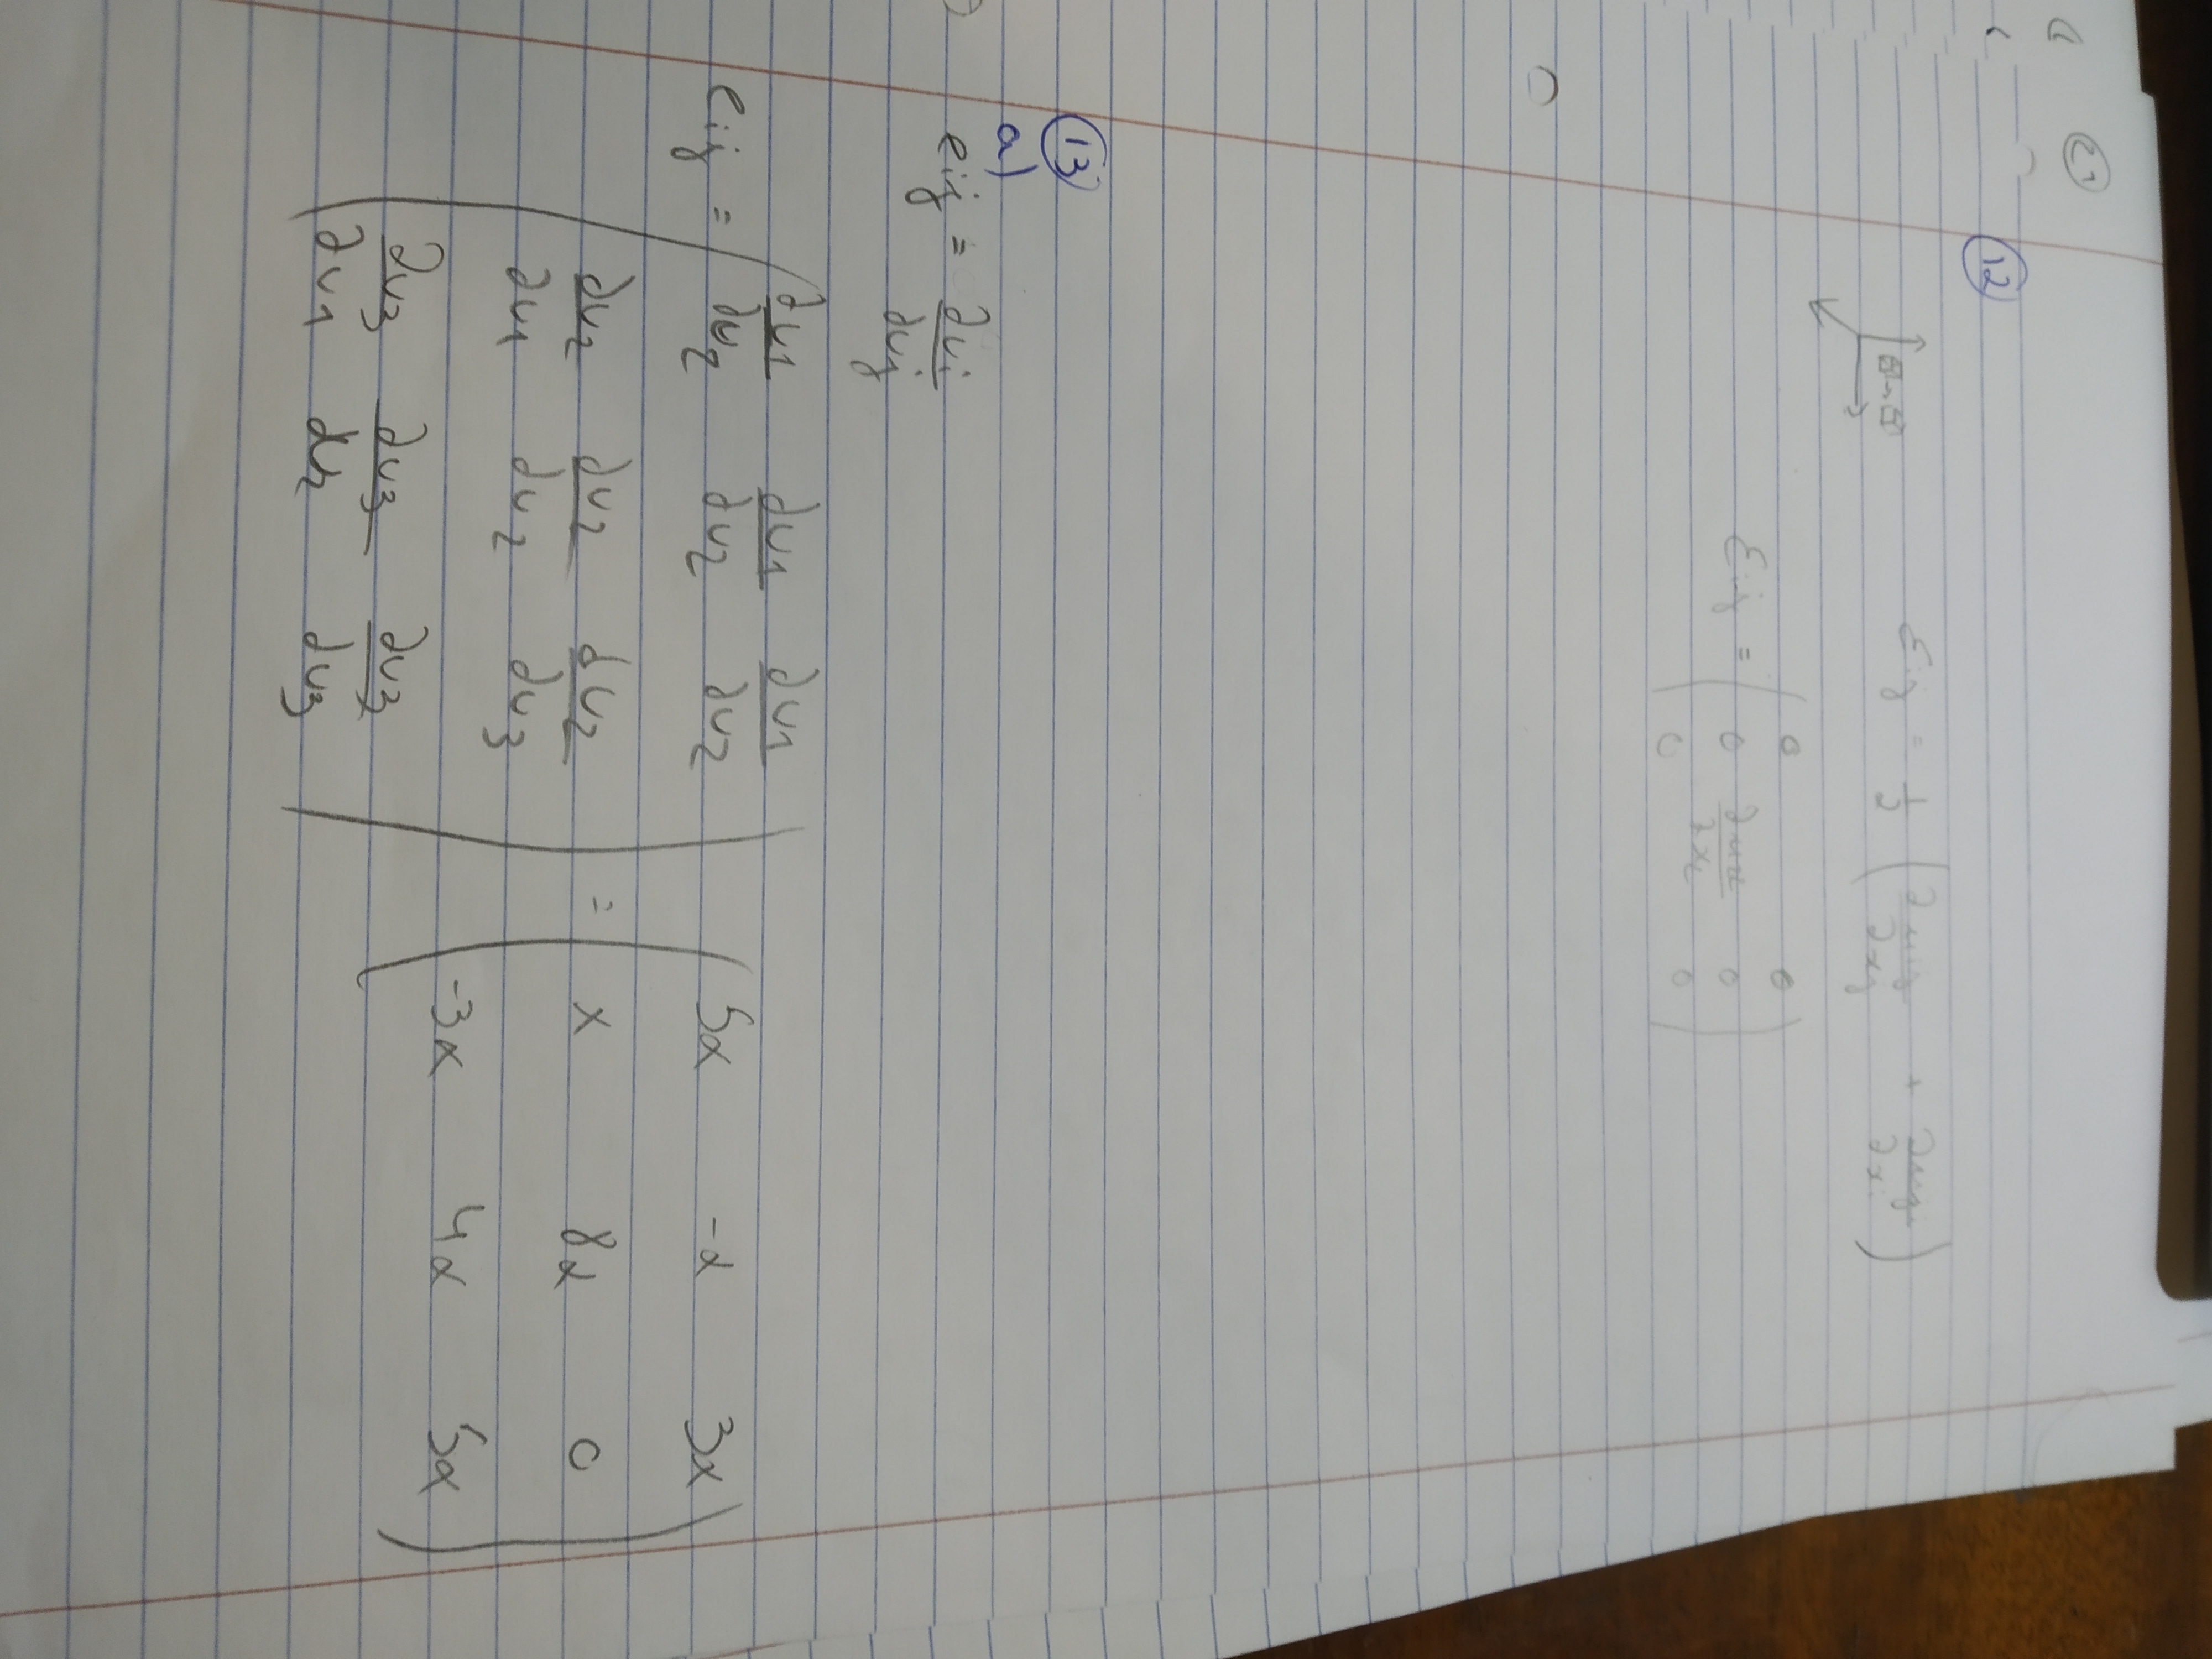 12
εij = 1/2 ( ∂ui/∂xj + ∂uj/∂xi )
εij = ( 0 0
0 0
0 0 )
13
a)
eij = ∂ui/∂uj
eij = ( ∂u1/∂u2 ∂u1/∂u2 ∂u1/∂u2
∂u2/∂u1 ∂u2/∂u2 ∂u2/∂u3
∂u3/∂u1 ∂u3/∂u2 ∂u3/∂u3 ) = ( 5α -α 3α
α 8α 0
-3α 4α 5α )